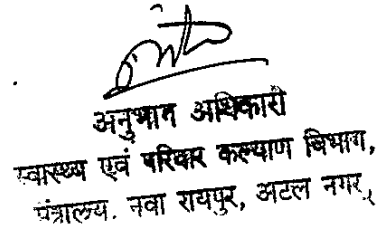 अनुभाग अधिकारी
स्वास्थ्य एवं परिवार कल्याण विभाग,
मंत्रालय. नवा रायपुर, अटल नगर,